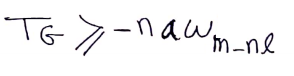 T_G ⩾ -naω_{m-nl}